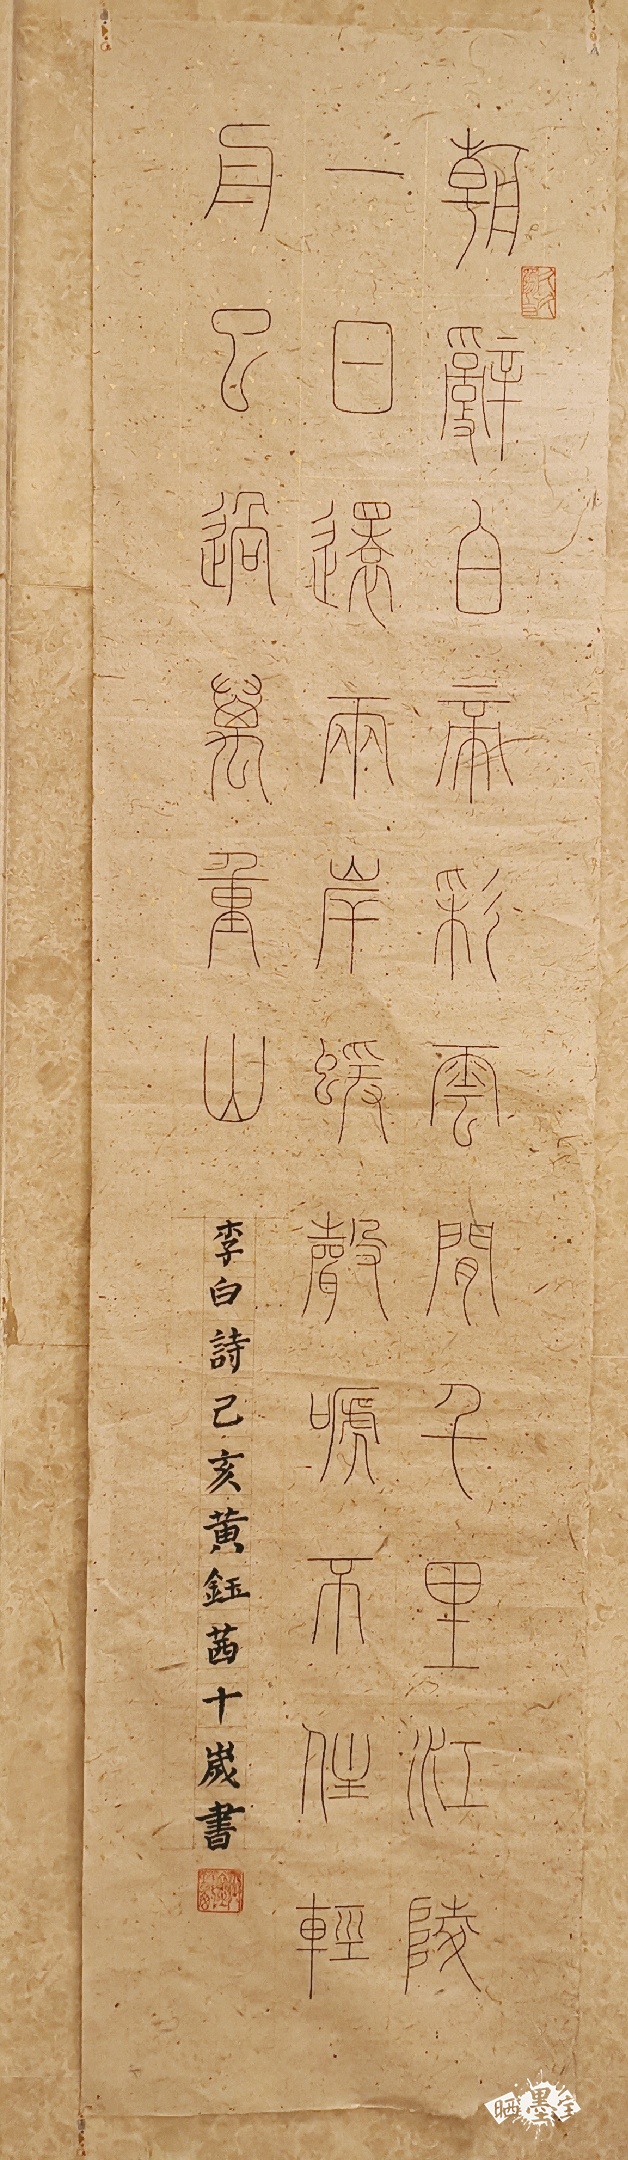 朝辭白帝彩雲閒千里江陵
一日還兩岸蝯聲嗁不住輕
舟已過萬重山
李白詩己亥黃鈺茜十歲書
晒墨宝